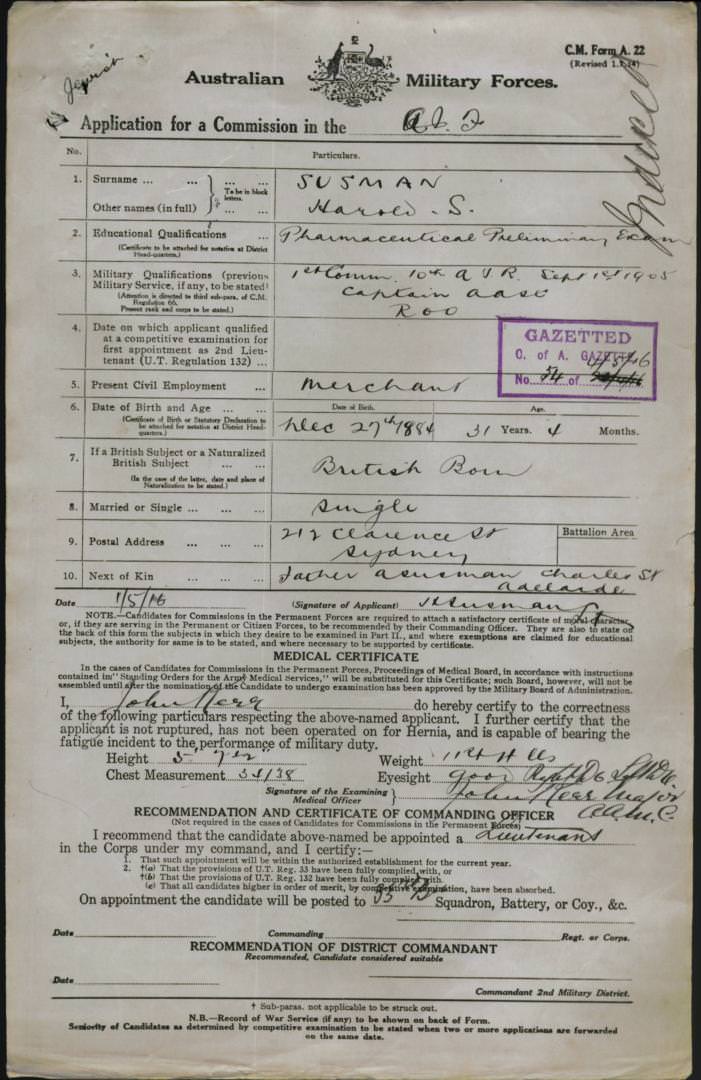 Jewish
C.M. Form A. 22
(Revised 1.7.14)
Australian Military Forces.
Indexed
Application for a Commission in the A.I.F
No. Particulars.
1. Surname ... ... ... ... SUSMAN
To be in block letters.
Other names (in full) ... ... Harold. S.
2. Educational Qualifications ... Pharmaceutical Preliminary Exam
(Certificate to be attached for notation at District
Head-quarters.)
3. Military Qualifications (previous 1st Comm. 10th A I R. Sept 1st 1905
Military Service, if any, to be stated) Captain AASC
(Attention is directed to third sub-para. of C.M. ROO
Regulation 66.
Present rank and corps to be stated.)
4. Date on which applicant qualified
at a competitive examination for
first appointment as 2nd Lieu-
tenant (U.T. Regulation 132) ...
GAZETTED
C. of A. GAZETTE 4/5/16
No. 54 of
5. Present Civil Employment ... Merchant
6. Date of Birth and Age ... ... Date of Birth. Age.
(Certificate of Birth or Statutory Declaration to Dec 27th 1884 31 Years. 4 Months.
be attached for notation at District Head-
quarters.)
7. If a British Subject or a Naturalized
British Subject ... ... British Born
(In the case of the latter, date and place of
Naturalization to be stated.)
8. Married or Single ... ... Single
9. Postal Address ... ... ... 212 Clarence St Battalion Area
Sydney
10. Next of Kin ... ... ... Father A Susman Charles St
Adelaide
Date 1/5/16 (Signature of Applicant) HSusman
NOTE.—Candidates for Commissions in the Permanent Forces are required to attach a satisfactory certificate of moral character,
or, if they are serving in the Permanent or Citizen Forces, to be recommended by their Commanding Officer. They are also to state on
the back of this form the subjects in which they desire to be examined in Part II., and where exemptions are claimed for educational
subjects, the authority for same is to be stated, and where necessary to be supported by certificate.
MEDICAL CERTIFICATE
In the cases of Candidates for Commissions in the Permanent Forces, Proceedings of Medical Board, in accordance with instructions
contained in "Standing Orders for the Army Medical Services," will be substituted for this Certificate; such Board, however, will not be
assembled until after the nomination of the Candidate to undergo examination has been approved by the Military Board of Administration.
I, John Kerr do hereby certify to the correctness
of the following particulars respecting the above-named applicant. I further certify that the
applicant is not ruptured, has not been operated on for Hernia, and is capable of bearing the
fatigue incident to the performance of military duty.
Height 5' 7 Weight 11st
Chest Measurement 34/38 Eyesight good Right D6 Left D6
Signature of the Examining
Medical Officer John Kerr Major
AAMC.
RECOMMENDATION AND CERTIFICATE OF COMMANDING OFFICER
(Not required in the cases of Candidates for Commissions in the Permanent Forces)
I recommend that the candidate above-named be appointed a Lieutenant
in the Corps under my command, and I certify:—
1. That such appointment will be within the authorized establishment for the current year.
2. †(a) That the provisions of U.T. Reg. 33 have been fully complied with, or
†(b) That the provisions of U.T. Reg. 132 have been fully complied with.
(c) That all candidates higher in order of merit, by competitive examination, have been absorbed.
On appointment the candidate will be posted to 35th Bn Squadron, Battery, or Coy., &c.
Date Commanding Regt. or Corps.
RECOMMENDATION OF DISTRICT COMMANDANT
Recommended, Candidate considered suitable
Date
Commandant 2nd Military District.
† Sub-paras. not applicable to be struck out.
N.B.—Record of War Service (if any) to be shown on back of Form.
Seniority of Candidates as determined by competitive examination to be stated when two or more applications are forwarded
on the same date.